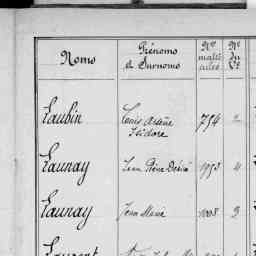 Noms
Prénoms & Surnoms
Nos matricules
Nos du Vt
Laubin
Louis Arsène Isidore
754
2
Launay
Jean Pierre Désiré
1953
4
Launay
Jean Marie
1008
3
Laurent